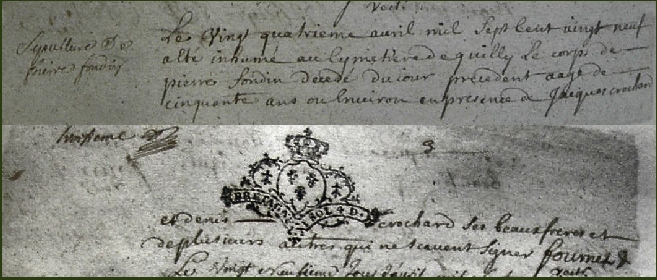 Sepulture de
pierre fondin
Le Vingt quatrieme avril mil Sept Cent vingt neuf
a été inhumé au Cymetiere de quilly Le corps de
pierre fondin décedé du iour precedent aagé de
cinquante ans ou Environ en presence de Jacques crochard
huitieme
3
et denis crochard Ses beaufreres et
de plusieurs autres qui ne scavent signer fournet
Le Vingt neufieme Jour d'avril mil